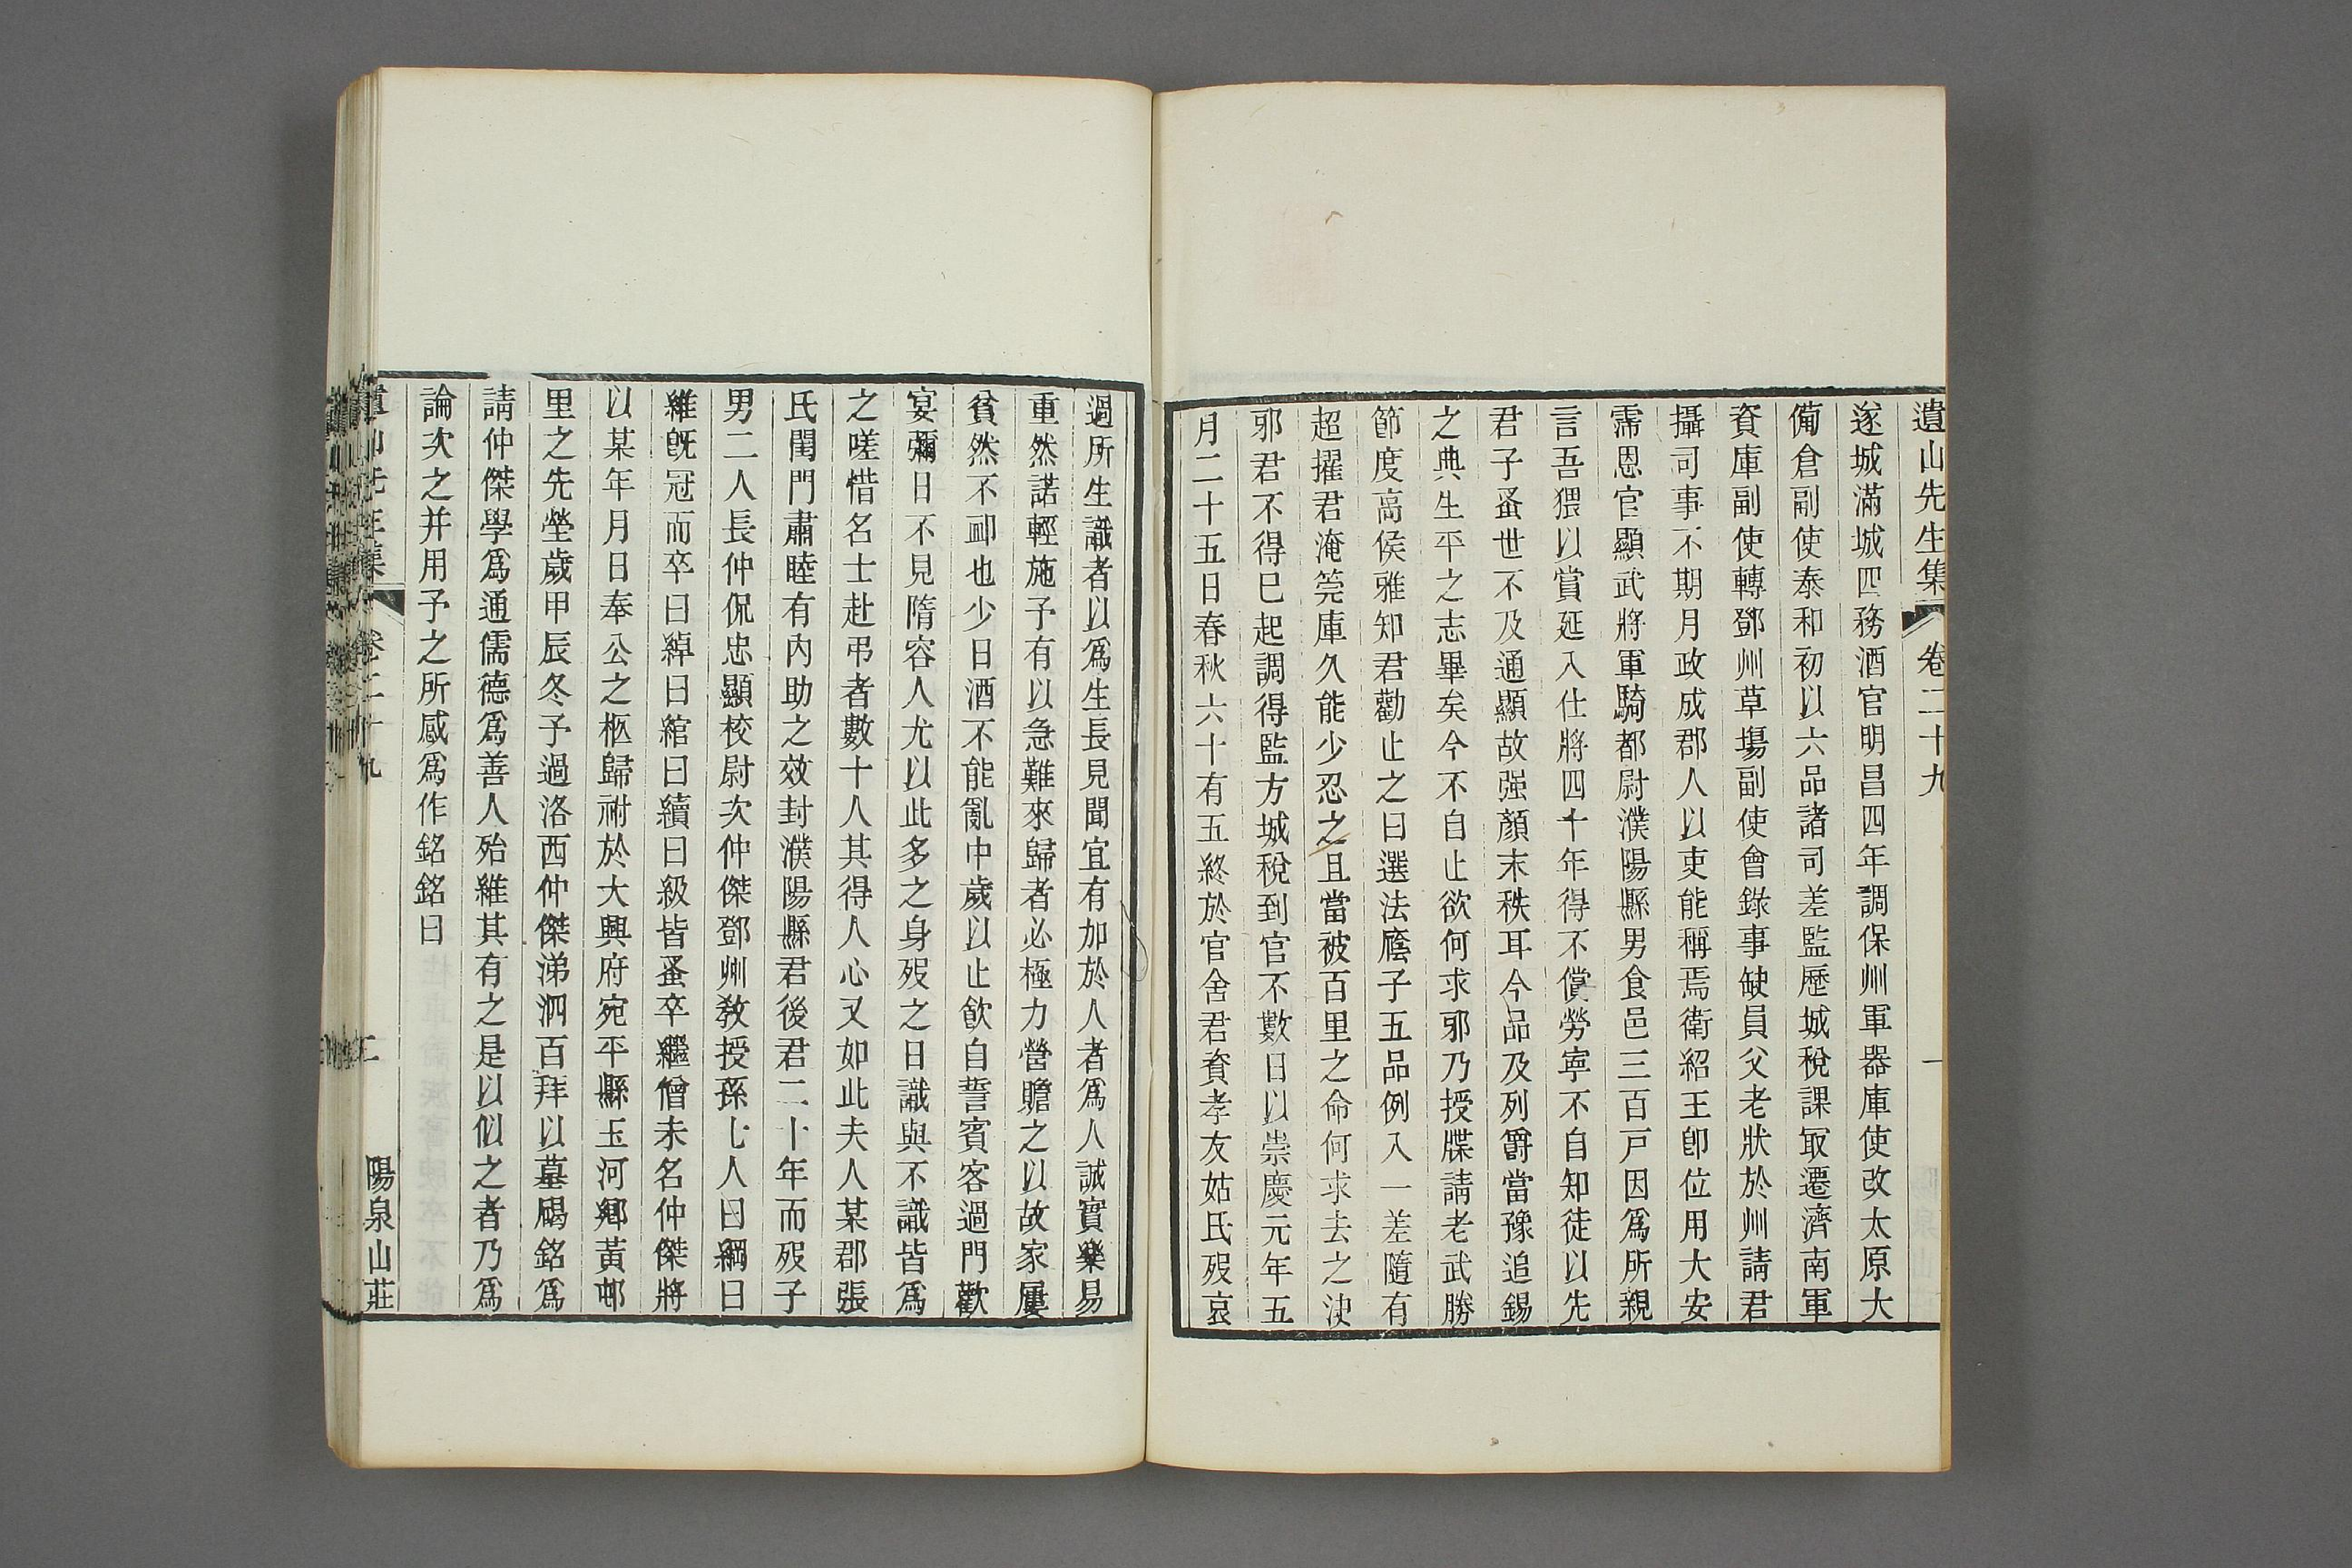 遺山先生集　卷二十九　一
遂城滿城四務酒官明昌四年調保州軍器庫使改太原大
備倉副使泰和初以六品諸司差監歷城稅課㝡遷濟南軍
資庫副使轉鄧州草場副使會錄事缺員父老狀於州請君
攝司事不期月政成郡人以吏能稱焉衛紹王卽位用大安
需恩官顯武將軍騎都尉濮陽縣男食邑三百戸因爲所親
言吾猥以賞延入仕將四十年得不償勞寧不自知徒以先
君子蚤世不及通顯故强顏末秩耳今品及列爵當豫追錫
之典生平之志畢矣今不自止欲何求邪乃授牒請老武勝
節度高侯雅知君勸止之曰選法廕子五品例入一差隨有
超擢君淹筦庫久能少忍之且當被百里之命何求去之決
邪君不得已起調得監方城稅到官不數日以崇慶元年五
月二十五日春秋六十有五終於官舍君資孝友姑氏歿哀
過所生識者以爲生長見聞宜有加於人者爲人誠實樂易
重然諾輕施予有以急難來歸者必極力營贍之以故家屢
貧然不䘏也少日酒不能亂中歲以止飮自誓賓客過門歡
宴彌日不見隋容人尤以此多之身歿之日識與不識皆爲
之嗟惜名士赴弔者數十人其得人心又如此夫人某郡張
氏閨門肅睦有內助之效封濮陽縣君後君二十年而歿子
男二人長仲侃忠顯校尉次仲傑鄧州敎授孫七人曰綱曰
維旣冠而卒曰綽曰綰曰續曰級皆蚤卒繼僧未名仲傑將
以某年月日奉公之柩歸祔於大興府宛平縣玉河鄉黃邨
里之先塋歲甲辰冬予過洛西仲傑涕泗百拜以墓碣銘爲
請仲傑學爲通儒德爲善人殆維其有之是以似之者乃爲
論次之并用予之所感爲作銘銘曰
遺山先生集　卷二十九　二　陽泉山莊